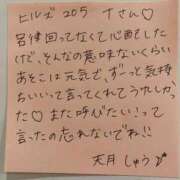 ヒルズ 205 Tさん♡
呂律回ってなくて心配した
けど、そんなの意味ないくらい
あそこは元気で、ずーっと気持
ちいいって言ってくれてうれしかっ
た♡ また呼びたい!って
言ったの忘れないでね!!
天月 しゅう